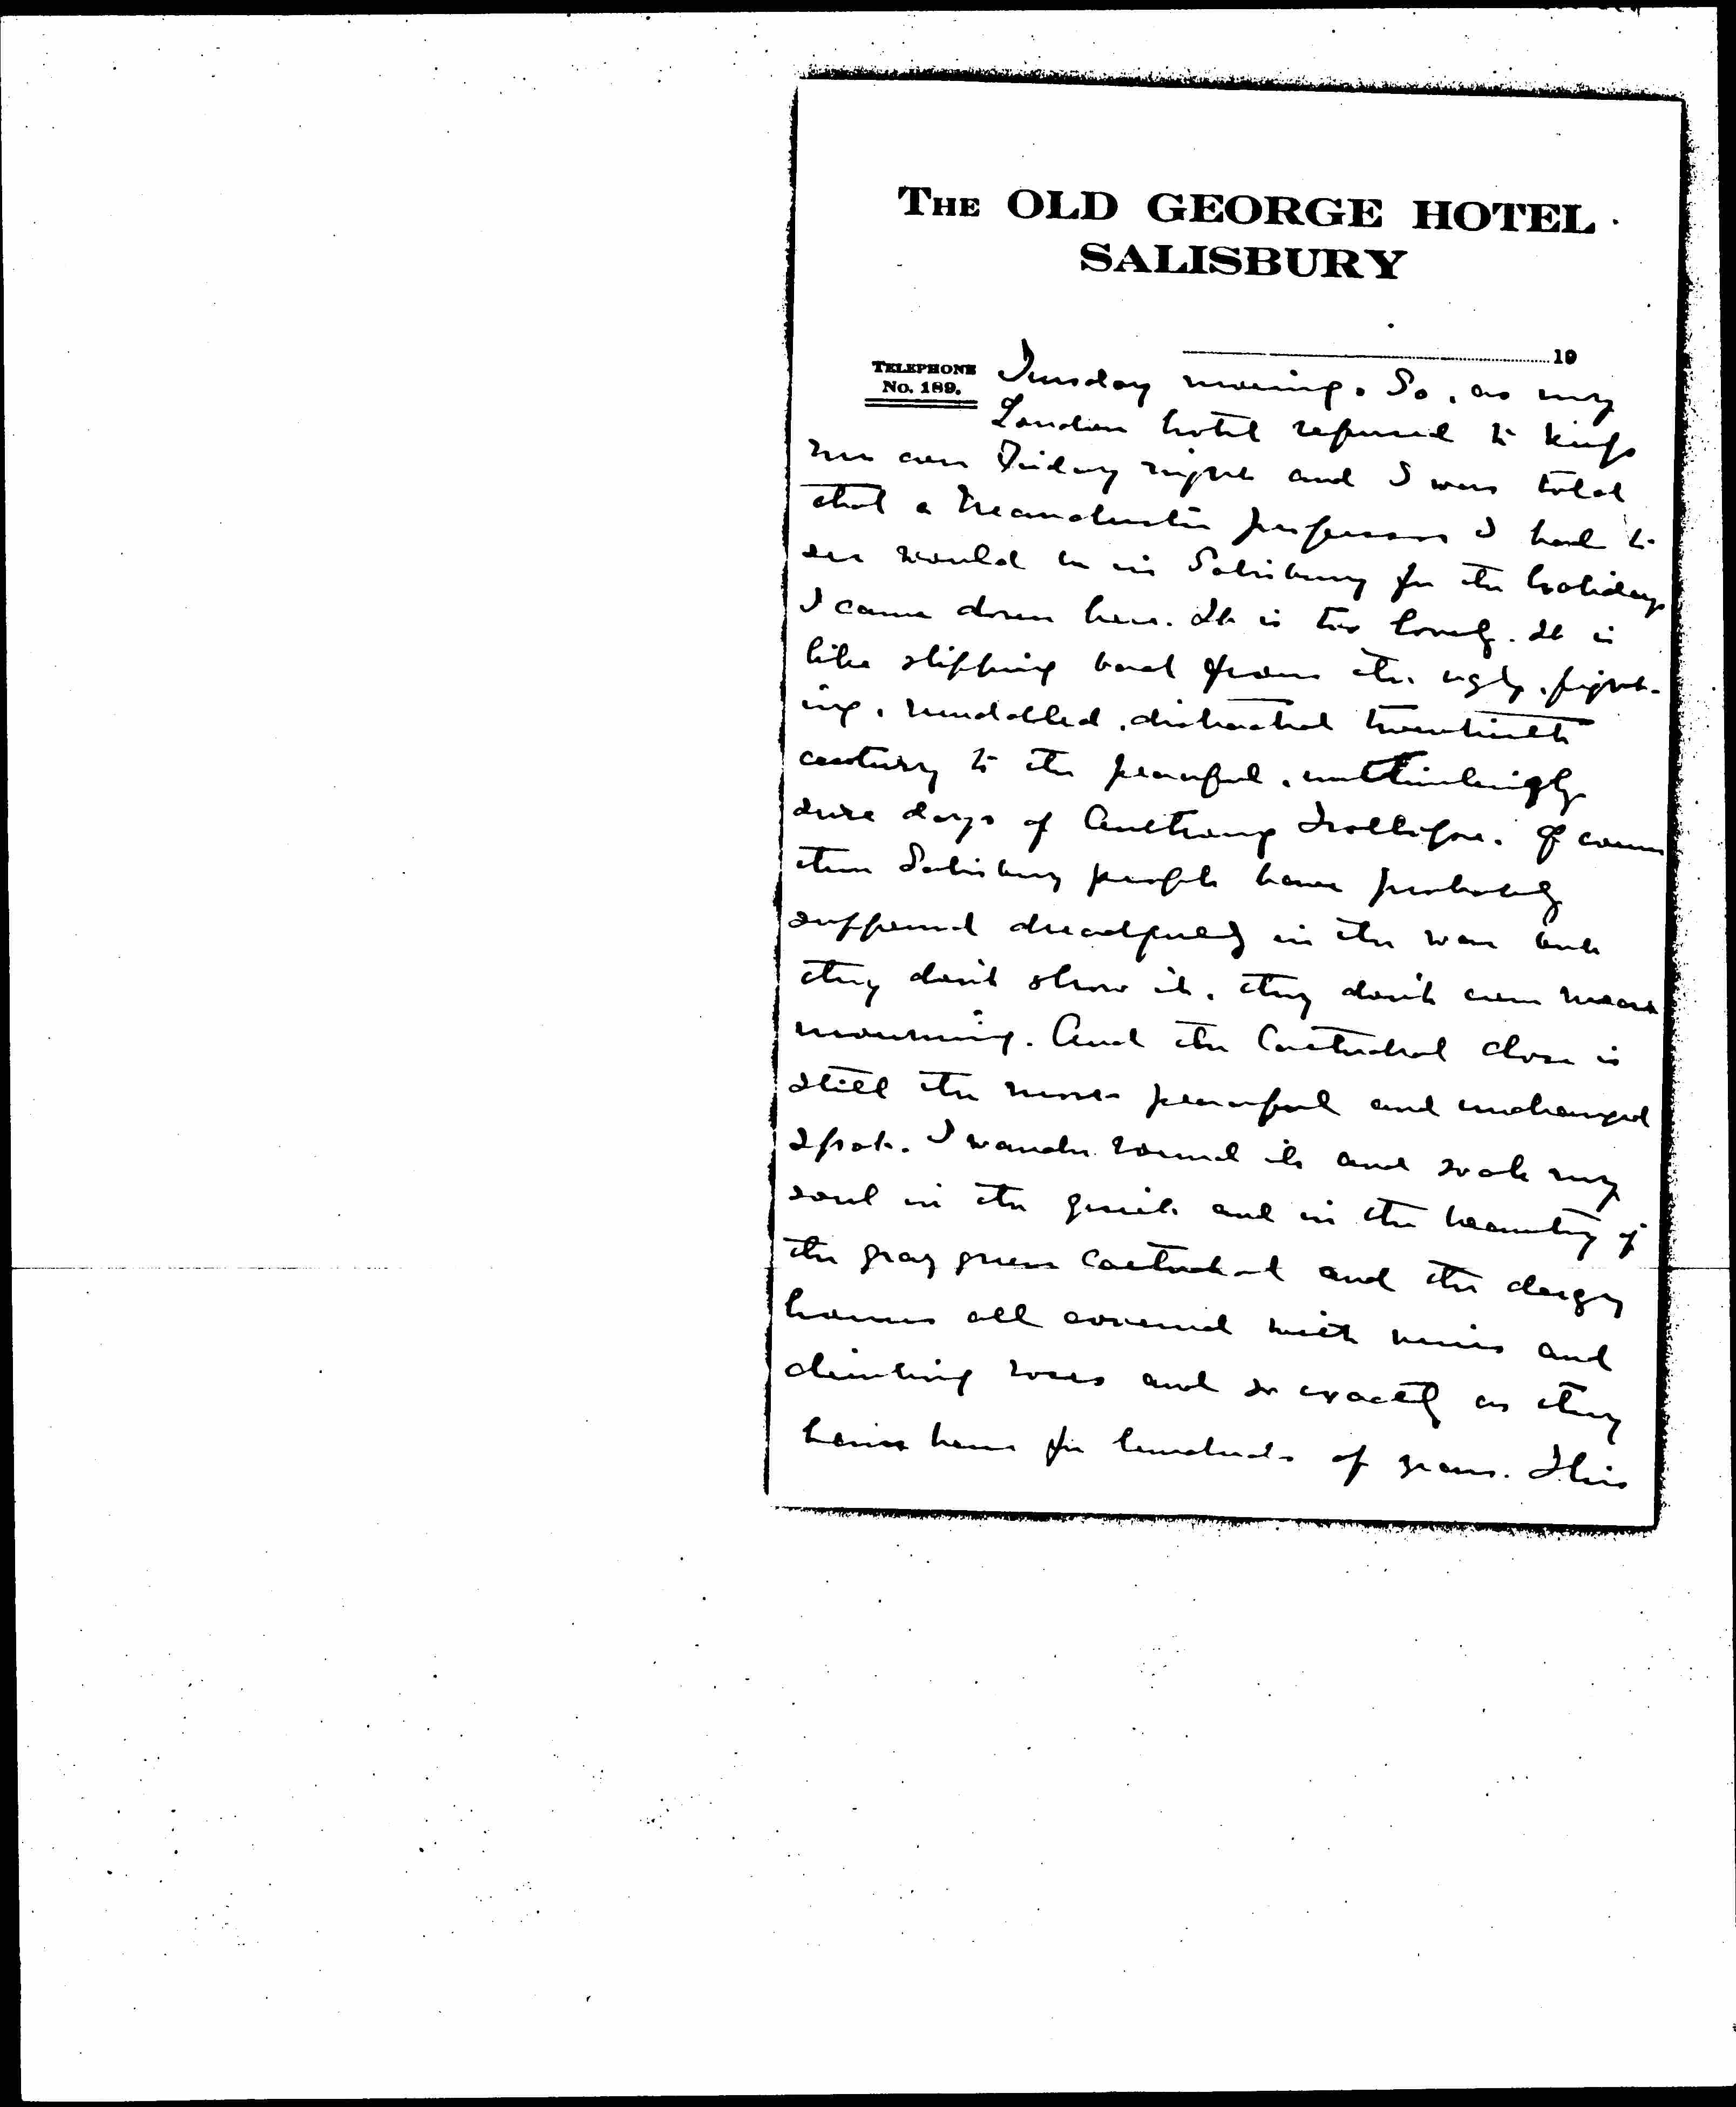 THE OLD GEORGE HOTEL
SALISBURY
19
TELEPHONE
No. 189.
Tuesday morning. So, as my
London hotel refused to keep
me over Friday night and I was told
that a Manchester professor I had to
see would be in Salisbury for the holidays
I came down here. It is too lovely. It is
like slipping back from the ugly, fight-
ing, muddled, distracted twentieth
century to the peaceful, unthinkingly
sure days of Anthony Trollope. Of course
these Salisbury people have probably
suffered dreadfully in the war but
they don't show it, they don't even wear
mourning. And the Cathedral Close is
still the most peaceful and unchanged
spot. I wander round it and soak my
soul in the quiet and in the beauty of
the gray green Cathedral and the clergy
houses all covered with vines and
climbing roses and so exactly as they
have been for hundreds of years. This